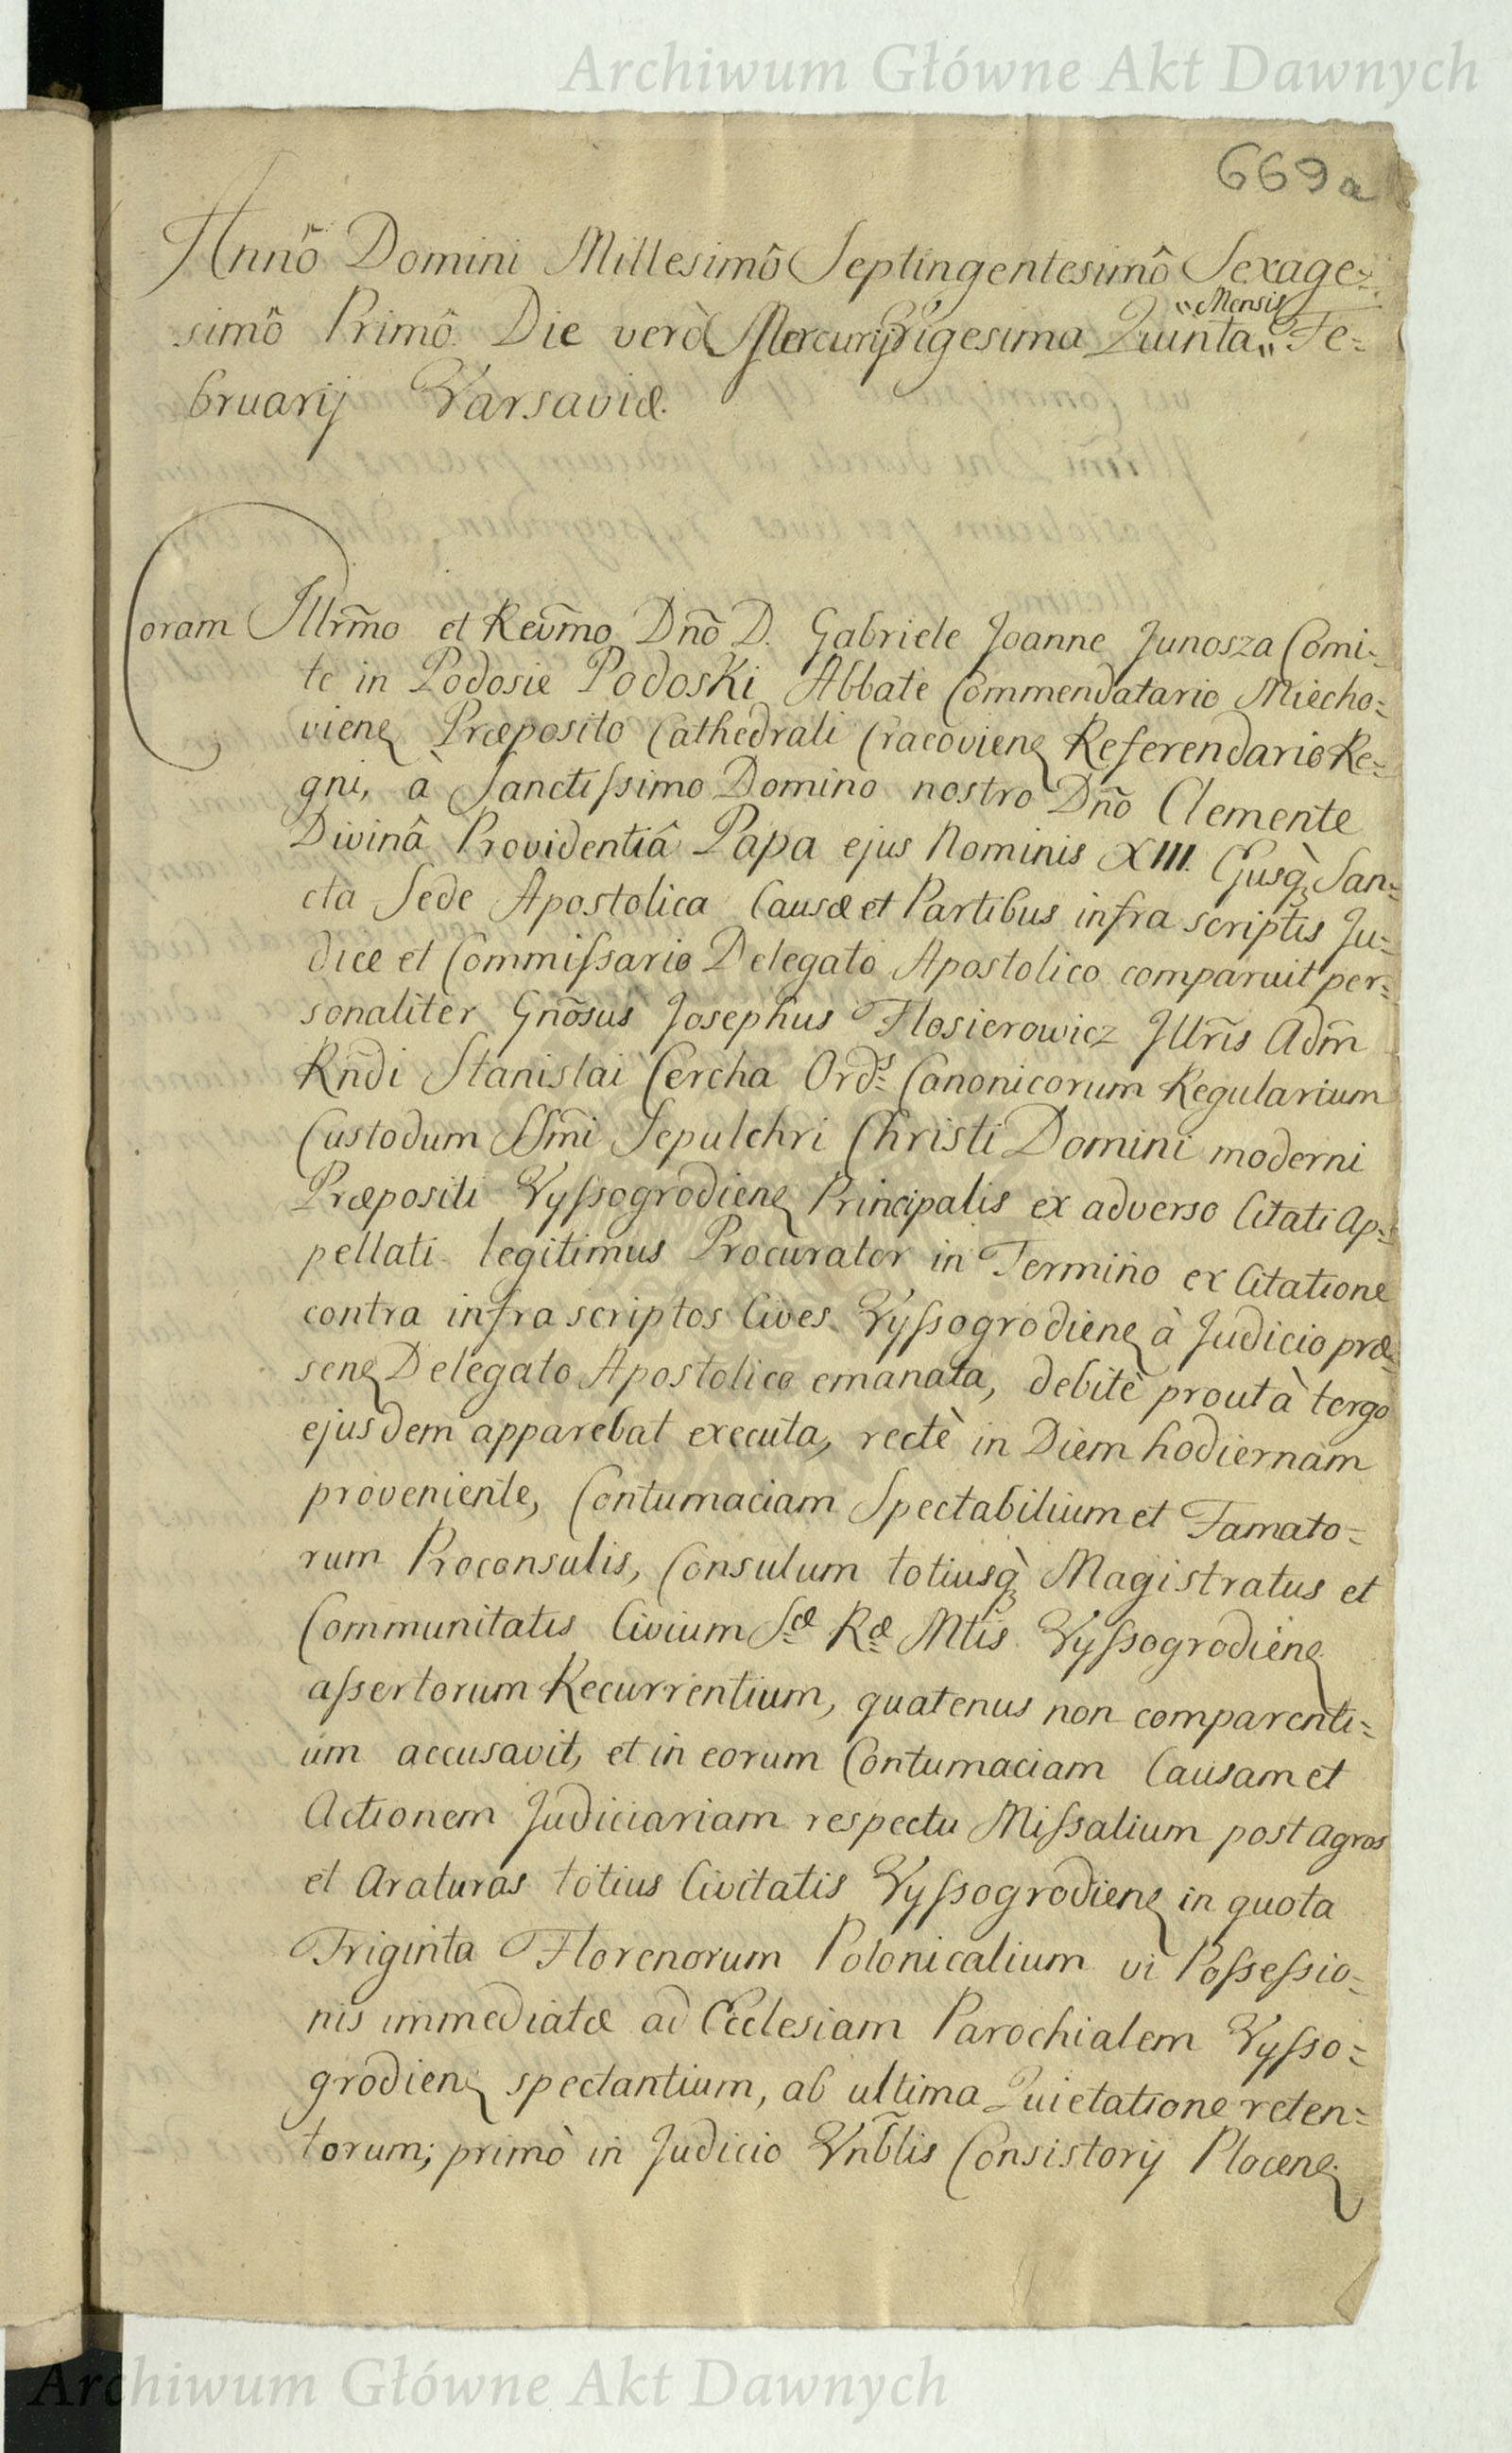 Archiwum Główne Akt Dawnych
669a
Annô Domini Millesimô Septingentesimô Sexage=
simô Primô. Die verò Mercurij Vigesima Quinta „Mensis„ Fe=
bruarij Varsaviæ.
Coram Illrm̃o et Revm̃o Dnõ D. Gabriele Joanne Junosza Comi=
te in Podosie Podoski Abbate Commendatario Miecho=
vienę Præposito Cathedrali Cracovienę Referendario Re=
gni, à Sanctissimo Domino nostro Dnõ Clemente
Divinâ Providentiâ Papa ejus Nominis XIII. Ejusq̀ San=
cta Sede Apostolica Causæ et Partibus infra scriptis Ju=
dice et Commissario Delegato Apostolico comparuit per=
sonaliter Gnõsus Josephus Flosierowicz Illrĩs Adm̃
Rñdi Stanislai Cercha Ords Canonicorum Regularium
Custodum SSm̃i Sepulchri Christi Domini moderni
Præpositi Vyssogrodienę Principalis ex adverso Citati Ap=
pellati legitimus Procurator in Termino ex Citatione
contra infra scriptos Cives Vyssogrodienę à Judicio præ=
senę Delegato Apostolico emanata, debitè prout à tergo
ejusdem apparebat executa, rectè in Diem hodiernam
proveniente, Contumaciam Spectabilium et Famato=
rum Proconsulis, Consulum totiusq̀ Magistratus et
Communitatis Civium Sæ Ræ Mtis Vyssogrodienę
assertorum Recurrentium, quatenus non comparenti=
um accusavit, et in eorum Contumaciam Causam et
Actionem Judiciariam respectu Missalium post agros
et Araturas totius Civitatis Vyssogrodienę in quota
Triginta Florenorum Polonicalium vi Possessio=
nis immediatæ ad Ecclesiam Parochialem Vysso=
grodienę spectantium, ab ultima Quietatione reten=
torum; primò in Judicio Vnb̃lis Consistorij Plocenę
Archiwum Główne Akt Dawnych